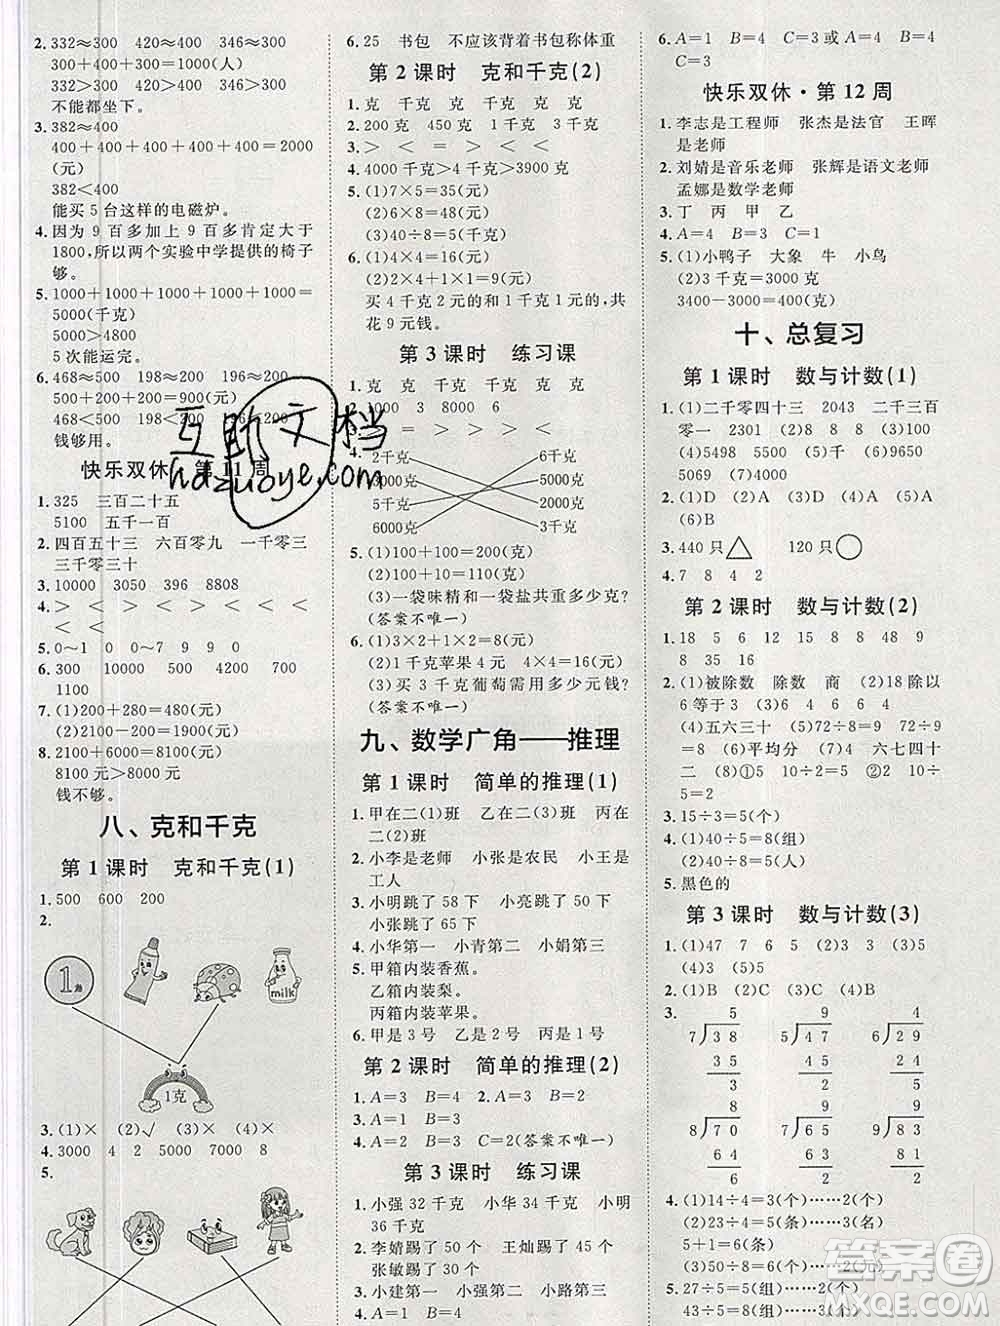 2. 332≈300　420≈400　346≈300
300+400+300=1000(人)
332>300　420>400　346>300
不能都坐下。
3. 382≈400
400+400+400+400+400=2000
(元)
382<400
能买 5 台这样的电磁炉。
4. 因为 9 百多加上 9 百多肯定大于
1800,所以两个实验中学提供的椅子
够。
5. 1000+1000+1000+1000+1000=
5000(千克)
5000>4800
5 次能运完。
6. 468≈500　198≈200　196≈200
500+200+200=900(元)
468<500　198<200
钱够用。
快乐双休·第 11 周
1. 325　三百二十五
5100　五千一百
2. 四百五十三　六百零九　一千零三
三千零三十
3. 10000　3050　396　8808
4. >　>　<　>　<　<　<　<
<　<
5. 0～1　0　7　9　9　0
6. 300　10000　4000　700　800
1100
7. (1)200+280=480(元)
(2)2100-1500=600(元)
8. 2100+6000=8100(元)
8100 千克>8000 千克
钱不够。
八、克和千克
第 1 课时　克和千克(1)
1. 500　600　200
2.
1角
milk
1克
3. (1)×　(2)√　(3)×　(4)×
4. 3000　4　5　5000　7000　8
5.
6. 25　书包　不应该背着书包称体重
第 2 课时　克和千克(2)
1. 克　千克　千克　克　克　克
2. 200 克　450 克　1 千克
3. >　<　=　<　>　<　>
4. 4000 千克>4 千克>3900 克
5. (1)7×5=35(元)
(2)6×8=48(元)
(3)40÷8=5(元)
6. (1)4×4=16(元)
(2)2×4+1×1=9(元)
买 4 千克 2 元的和 1 千克 1 元的,共
花 9 元钱。
第 3 课时　练习课
1. 克　克　千克　千克　克　克
2. 4000　3　8000　6
3. <　>　=　>　<　>
4. 2千克　5千克
3000克　5000克
5千克　2000克
6000克　3千克
5. (1)100+100=200(克)
(2)400+400=800(克)
(3)一袋味精和一袋盐共重多少克?
(答案不唯一)
6. (1)3×2+1×2=8(元)
(2)1千克苹果 4 元　4×4=16(元)
(3)买 3 千克葡萄需用多少元钱?
(答案不唯一)
九、数学广角——推理
第 1 课时　简单的推理(1)
1. 甲在二(1)班　乙在二(3)班　丙在
二(2)班
2. 小李是老师　小张是农民　小王是
工人
3. 小明跳了 58 下　小亮跳了 50 下
小张跳了 65 下
4. 小华第一　小青第二　小娟第三
5. 甲箱内装香蕉。
乙箱内装梨。
丙箱内装苹果。
6. 甲是 3 号　乙是 2 号　丙是 1 号
第 2 课时　简单的推理(2)
1. A=3　B=4　2. A=1　B=3
3. A=1　B=3
4. A=2　B=2　C=2(答案不唯一)
第 3 课时　练习课
1. 小强 32 千克　小华 34 千克　小明
36 千克
2. 李婧踢了 50 个　王灿踢了 30 个
张敏踢了 60 个
3. 小建第一　小强第二　小路第三
4. A=1　B=4　C=3
6. A=1　B=4　C=3 或 A=4　B=1
C=3
快乐双休·第 12 周
1. 李志是工程师　张杰是法官　王晖
是老师
2. 刘婧是音乐老师　张辉是语文老师
孟娜是数学老师
3. 丁　丙　甲　乙
4. A=4　B=1　C=2
5. (1)小鸭子　大象　牛　小鸟
(2)3 千克=3000 克
3400-3000=400(克)
十、总复习
第 1 课时　数与计数(1)
1. (1)二千零四十三　2043　二千三百
零一　2301　(2)8　(3)3
(4)5498　5500　(5)4050　9050
5069　(6)4570　4571
2. (1)D　(2)A　(3)D　(4)D　(5)A
(6)B
3. 440 只△　120 只○
4. 7　8　4　2
第 2 课时　数与计数(2)
1. 18　5　6　12　15　8　8　48
8　35　16
2. (1)被除数　除数　商　(2)18 除以
6 等于 3　(3)6　4　6　6　4
(4)五六三十　(5)72÷8=9　72÷
9=8　(6)平均分　(7)六七四十
二　(8)①12÷6=2　②2　12÷2
=6
3. 15÷3=5(个)
4. (1)40÷5=8(组)
(2)40÷8=5(人)
5. 黑色的
第 3 课时　数与计数(3)
1. (1)47　7　6　5　(2)3　(3)5
(4)3　(5)5
2. (1)B　(2)C　(3)C　(4)B
3.
5　9　4
7)38　5)47　6)29
35　45　24
3　2　5
8　8　9
8)70　8)67　7)65
64　64　63
6　3　2
4. (1)14÷4=3(个)……2(个)
(2)23÷4=5(条)……3(名)
5+1=6(条)
(3)50÷6=8(个)……2(元)
5. 27÷5=5(组)……2(个)
43÷5=8(组)……3(个)
互助文档
hdzuoye.com
答案圈
MXQE.COM